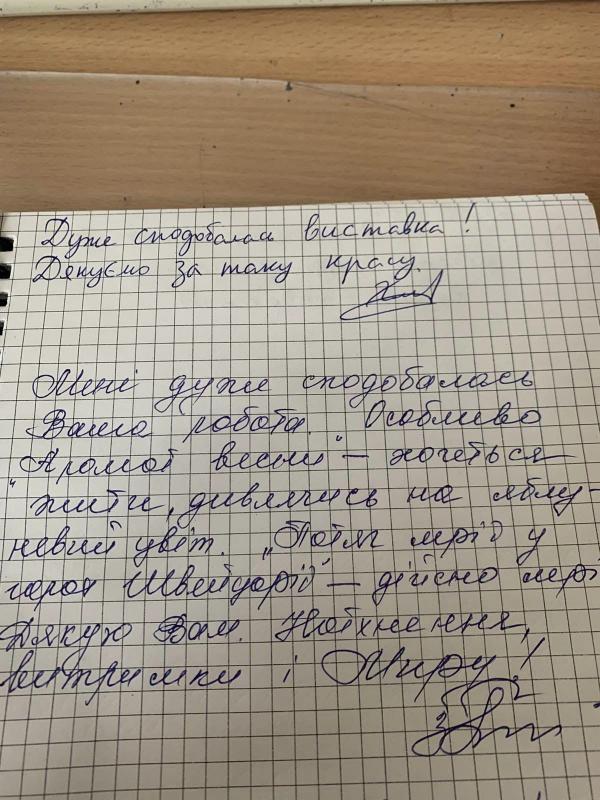 Дуже сподобалась виставка!
Дякуємо за таку красу.
Мені дуже сподобалась
Ваша робота. Особливо
"Аромат весни" – хочеться
жити, дивлячись на яблу-
невий цвіт. "Потяг мрій у
горах Швейцарії" – дійсно мрі
Дякую Вам. Натхнення,
витримки і Миру!